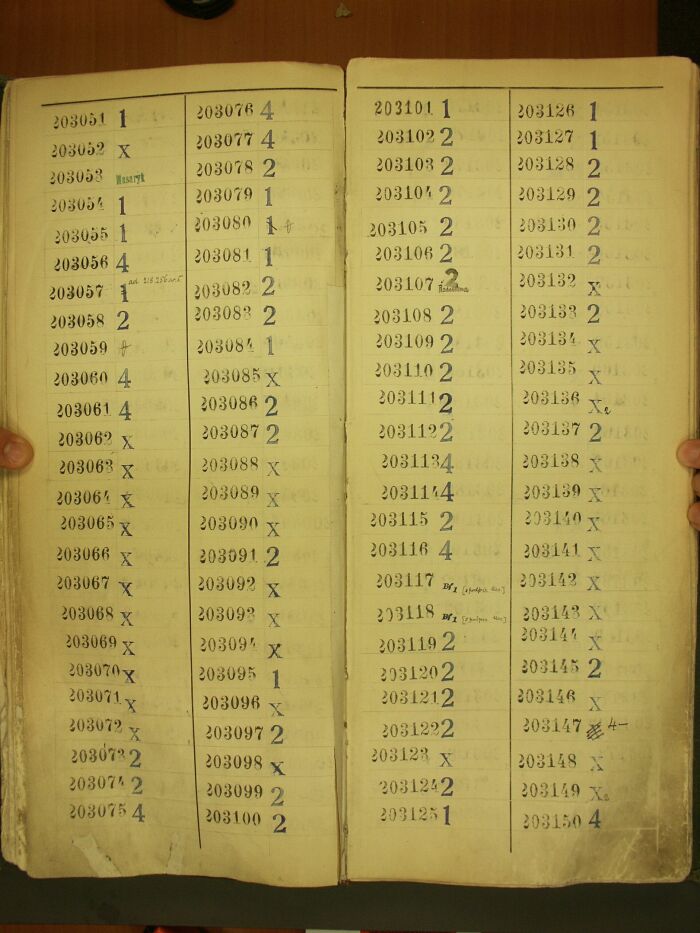 203051 1
203052 X
203053 Masaryk
203054 1
203055 1
203056 4
203057 1 ad.
203058 2
203059
203060 4
203061 4
203062 X
203063 X
203064 X
203065 X
203066 X
203067 X
203068 X
203069 X
203070 X
203071 X
203072 X
203073 2
203074 2
203075 4
203076 4
203077 4
203078 2
203079 1
203080 1
203081 1
203082 2
203083 2
203084 1
203085 X
203086 2
203087 2
203088 X
203089 X
203090 X
203091 2
203092 X
203093 X
203094 X
203095 1
203096 X
203097 2
203098 X
203099 2
203100 2
203101 1
203102 2
203103 2
203104 2
203105 2
203106 2
203107 2
203108 2
203109 2
203110 2
203111 2
203112 2
203113 4
203114 4
203115 2
203116 4
203117 Bf1
203118 Bf1
203119 2
203120 2
203121 2
203122 2
203123 X
203124 2
203125 1
203126 1
203127 1
203128 2
203129 2
203130 2
203131 2
203132 X
203133 2
203134 X
203135 X
203136 X
203137 2
203138 X
203139 X
203140 X
203141 X
203142 X
203143 X
203144 X
203145 2
203146 X
203147 4-
203148 X
203149 X
203150 4